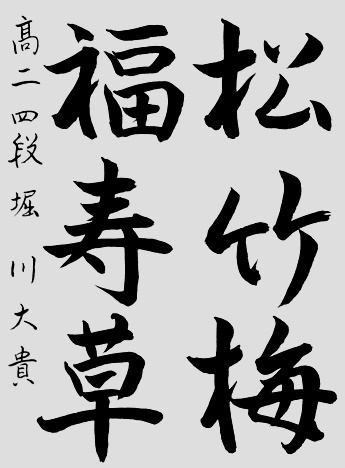 松竹梅
福寿草
高二四段堀川大貴